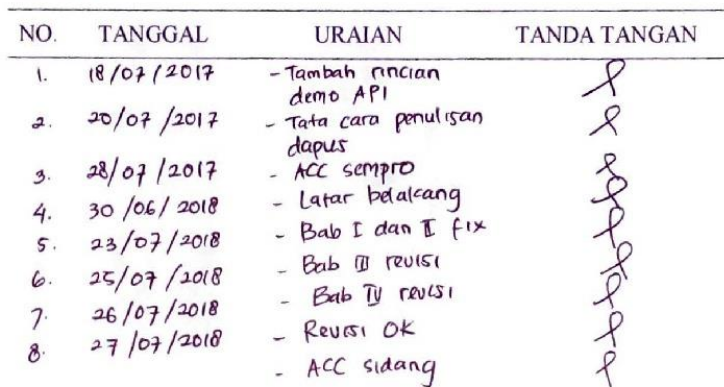 NO. TANGGAL URAIAN TANDA TANGAN
1. 18/07/2017 - Tambah rincian
demo API
2. 20/07/2017 - Tata cara penulisan
dapus
3. 28/07/2017 - ACC sempro
4. 30/06/2018 - Latar belakang
5. 23/07/2018 - Bab I dan II fix
6. 25/07/2018 - Bab III revisi
7. 26/07/2018 - Bab IV revisi
8. 27/07/2018 - Revisi OK
- ACC sidang